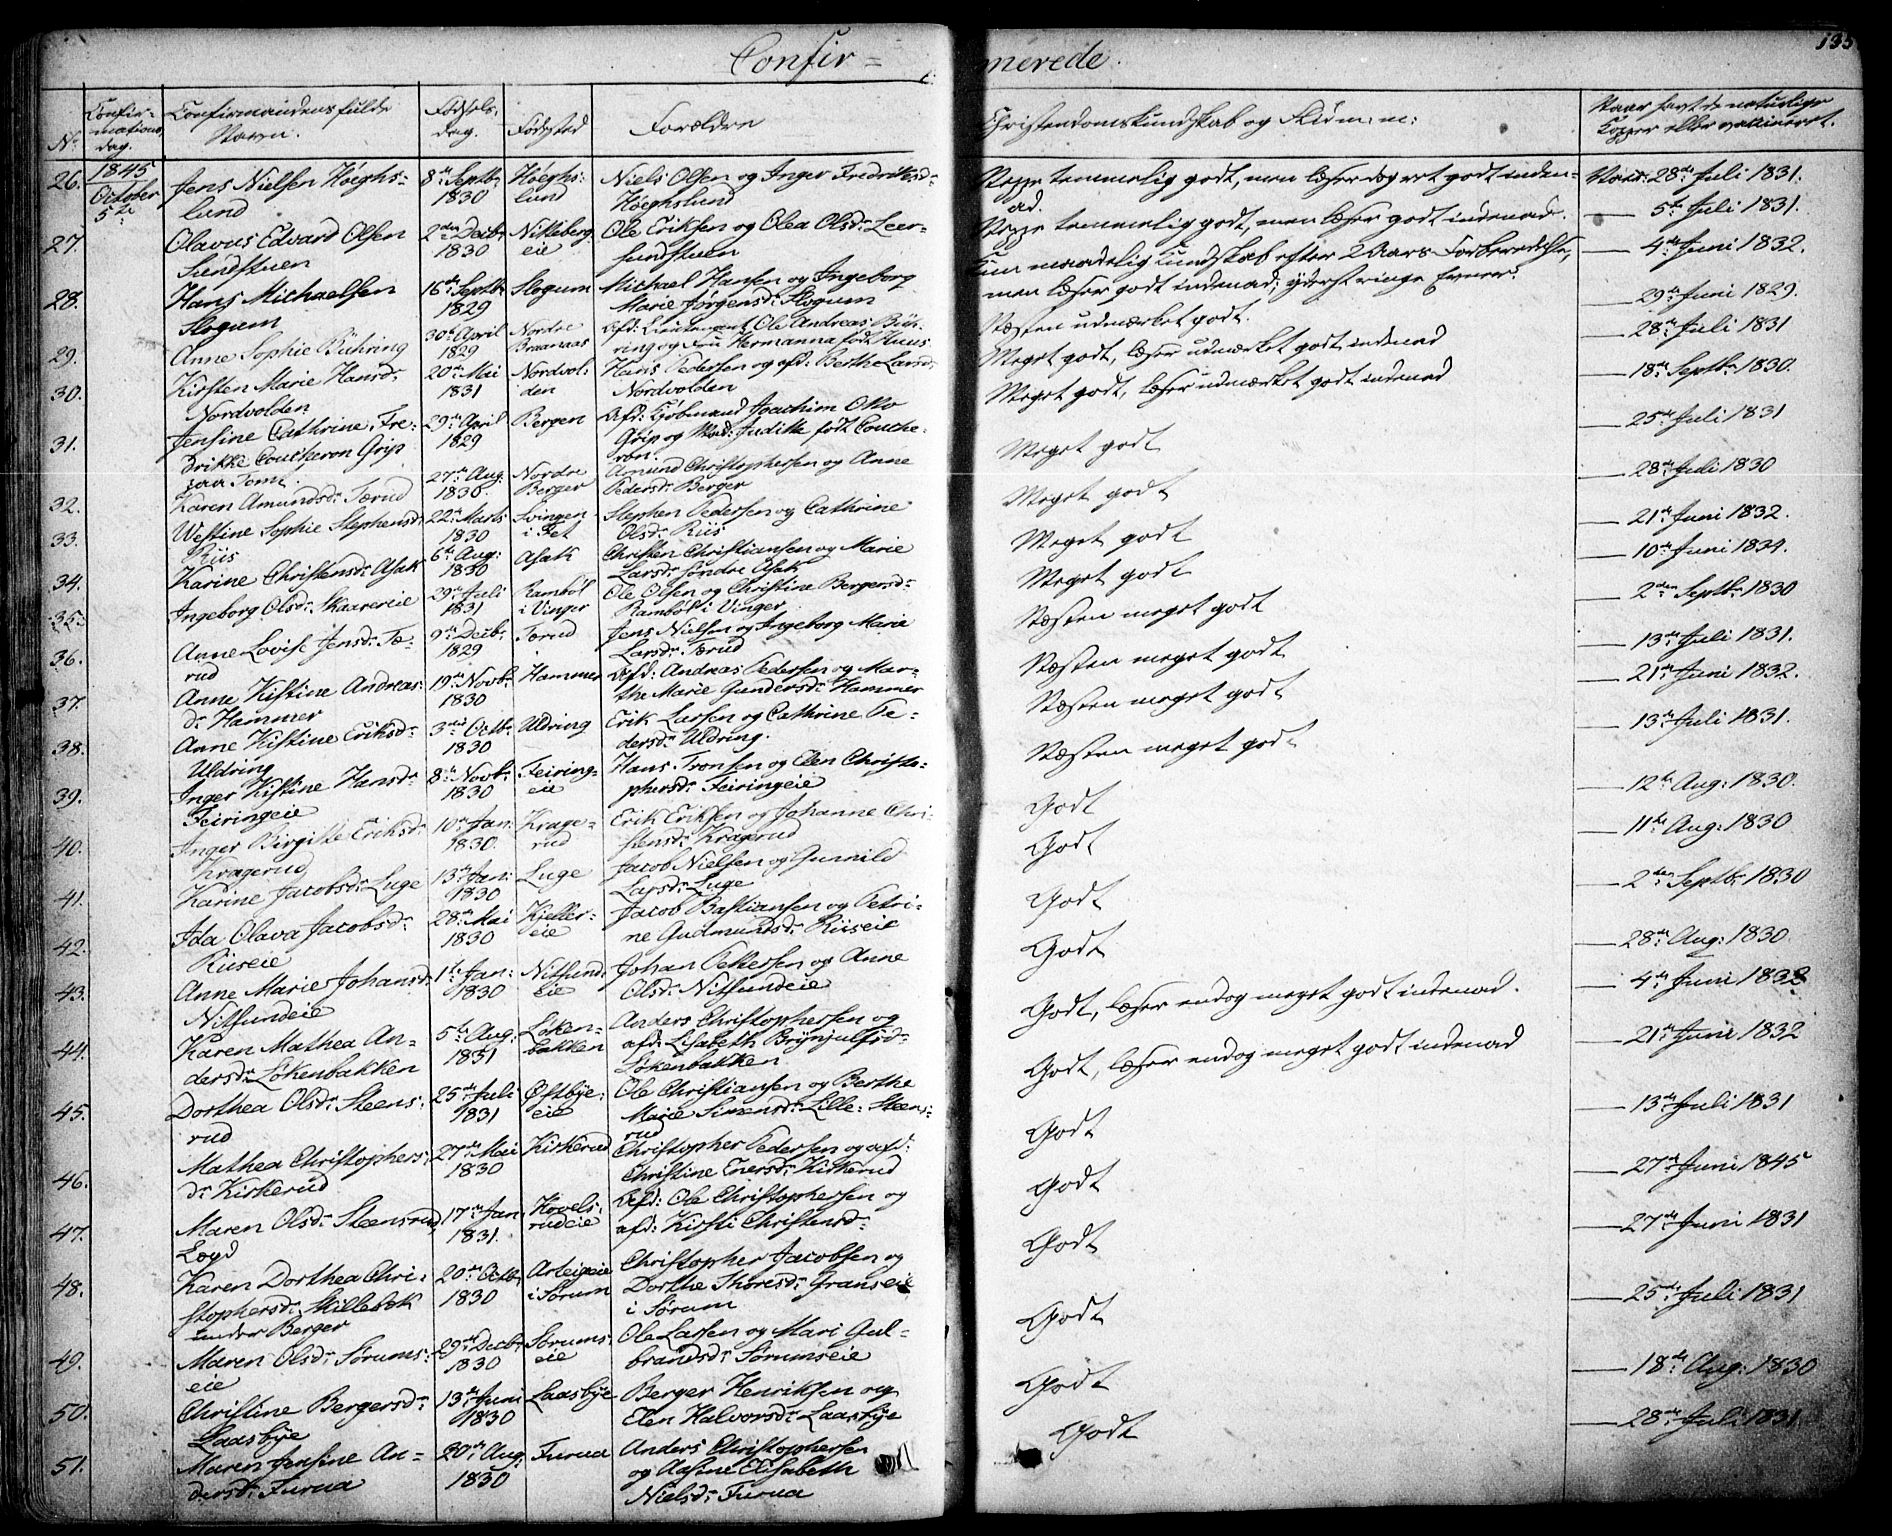 Confir=
merede.
135
No.
Confir=
mations
dag.
Confirmandens fulde
Navn.
Fødsels,
dag.
Fødested
Forældre
Christendomskundskab og Flid m: m:
Naar havt de naturlige
Kopper eller vaccineret.
26.
1845
October
5te
Jens Nielsen Höeghs=
lund
8de Septb:
1830
Höeghs=
lund
Niels Olsen og Inger Fredriksd:
Höeghslund
temmelig godt, men læser meget godt inden=
ad.
Vacc. 28de Juli 1831.
27.
Olavus Edvard Olsen
Sundstuen
2den Decbr:
1830
Nitteberg
eie
Ole Eriksen og Olea Olsdr: Leer=
sundstuen
temmelig godt, men læser godt indenad.
— 5te Juli 1831.
28.
Hans Michaelsen
Slogum
16de Septbr
1829
Slogum
Michael Hansen og Ingeborg
Marie Jørgensdr: Slogum
Kun maadelig Kundskab efter 2 Aars Forberedelse,
men læser godt indenad; yderst ringe Evner.
— 4de Juni 1832.
29.
Anne Sophie Bühring
30de April
1829
Nordre
Braanaas
Afd: Lieutenant Ole Andreas Büh=
ring og Fru Hermanna født Huus
Næsten udmærket godt.
— 29de Juni 1829.
30.
Kirsten Marie Hansdr:
Nordvolden
20de Mai
1831
Nordvol=
den
Hans Pedersen og afd: Berthe Larsd:
Nordvolden
Meget godt, læser udmærket godt indenad
— 28de Juli 1831
31.
Jensine Cathrine Fre=
drikke Coucheron Grip
paa Tomt.
29de April
1829
Bergen
Afd: Kjöbmand Joachim Otto
Grip og Mad: Judith født Couche=
ron.
Meget godt, læser udmærket godt indenad
— 18de Septbr 1830.
32.
Karen Amundsdr: Tærud
27de Aug.
1830.
Nordre
Berger
Amund Christophersen og Anne
Pedersdr: Berger
Meget godt
— 25de Juli 1831
33.
Westine Sophie Stephensd:
Riis
22de Marts
1830
Svingen
i Fet
Stephen Pedersen og Cathrine
Olsdr: Riis
Meget godt
— 28de Juli 1830
34.
Karine Christensdr: Asak
6te Aug:
1830
Asak
Christen Christiansen og Marie
Larsdr: Søndre Asak
Meget godt
— 21de Juni 1832.
35.
Ingeborg Olsdr: Skaarereie
29de Juli
1831
Ramböl
i Vinger
Ole Olsen og Christine Bergersdr:
Ramböl i Vinger
Meget godt
— 10de Juni 1834.
36.
Anne Lovise Jensdr: Tæ=
rud
9de Decbr:
1829
Tærud
Jens Nielsen og Ingeborg Marie
Larsdr: Tærud
Næsten meget godt
— 2den Septbr 1830
37.
Anne Kistine Andreas=
dr: Hammer
19de Novb:
1830
Hammer
Afd: Andreas Pedersen og Mar=
the Marie Gundersdr: Hammer
Næsten meget godt
— 13de Juli 1831.
38.
Anne Kistine Eriksdr:
Uldring
3die Octb:
1830
Uldring
Erik Larsen og Cathrine Pe=
dersdr: Uldring.
Næsten meget godt
— 21de Juni 1832.
39.
Inger Kistine Hansdr
Feiringeie
8de Novb:
1830
Feiring=
eie
Hans Tronsen og Elen Christo=
phersdr: Feiringeie
Næsten meget godt
— 13de Juli 1831.
40.
Inger Birgitte Eriksdr:
Kragerud
10de Jan:
1830.
Krage=
rud
Erik Eriksen og Johanne Chri=
stensdr: Kragerud
Godt
— 12te Aug: 1830.
41.
Karine Jacobsdr: Luge
13de Jan:
1830
Luge
Jacob Nielsen og Gunnild
Larsdr: Luge
Godt
— 11te Aug: 1830
42.
Ida Olava Jacobsdr:
Riiseie
28de Mai
1830
Kjeller=
eie
Jacob Bastiansen og Petri=
ne Gudmundsdr: Riiseie
Godt
— 2den Septbr 1830
43.
Anne Marie Johansd:
Nitsundeie
1ste Jan:
1830
Nitsund=
eie
Johan Pettersen og Anne
Olsdr: Nitsundeie
Godt
— 28de Aug: 1830
44.
Karen Mathea An=
dersdr: Lökenbakken
5te Aug:
1831
Löken=
bakken
Anders Christophersen og
afd: Lisabeth Brynjulfsdr:
Lökenbakken
Godt, læser endog meget godt indenad.
— 4de Juni 1832
45.
Dorthea Olsdr: Steens=
rud
25de Juli
1831
Østbye=
eie
Ole Christiansen og Berthe
Marie Simensdr: Lille-Steens=
rud
Godt, læser endog meget godt indenad
— 21de Juni 1832
46.
Mathea Christophers=
dr: Kirkerud
27de Mai
1830
Kirkerud
Christopher Pedersen og afd:
Christine Enersdr: Kirkerud
Godt
— 13de Juli 1831
47.
Maren Olsdr: Steensrud
Lægd
17de Jan:
1831.
Hovels=
rudeie
Afd: Ole Christophersen og
afd: Kirsti Christensdr:
Godt
— 27de Juni 1845
48.
Karen Dorthea Chri=
stophersdr: Skillebek
under Berger
20de Octb:
1830
Arteigeie
i Sørum
Christopher Jacobsen og
Dorthe Thoresdr: Granseie
i Sørum
Godt
— 27de Juni 1831
49.
Maren Olsdr: Sørums=
eie
29de Decbr
1830
Sørums=
eie
Ole Larsen og Mari Gul=
brandsdr: Sørumseie
Godt
— 25de Juli 1831
50.
Christine Bergersdr:
Laasbye
13de Juni
1830
Laasbye
Berger Henriksen og
Elen Halvorsdr: Laasbye
Godt
— 18de Aug: 1830
51.
Maren Jensine An=
dersdr: Furua
30de Aug:
1830
Furua
Anders Christophersen
og Aasine Elisabeth
Nielsdr: Furua
Godt
— 28de Juli 1831